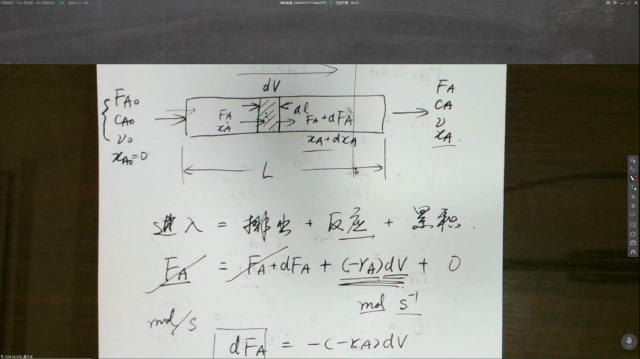 dV
F_A0
C_A0
v_0
x_A0=0
F_A
x_A
dl
F_A+dF_A
x_A+dx_A
F_A
C_A
v
x_A
L
进入 = 排出 + 反应 + 累积
F_A = F_A+dF_A + (-r_A)dV + 0
mol/s
mol s⁻¹
dF_A = -(-r_A)dV